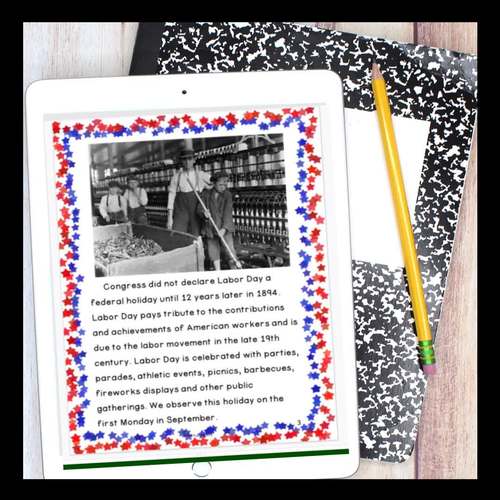 Congress did not declare Labor Day a
federal holiday until 12 years later in 1894.
Labor Day pays tribute to the contributions
and achievements of American workers and is
due to the labor movement in the late 19th
century. Labor Day is celebrated with parties,
parades, athletic events, picnics, barbecues,
fireworks displays and other public
gatherings. We observe this holiday on the
first Monday in September.
3